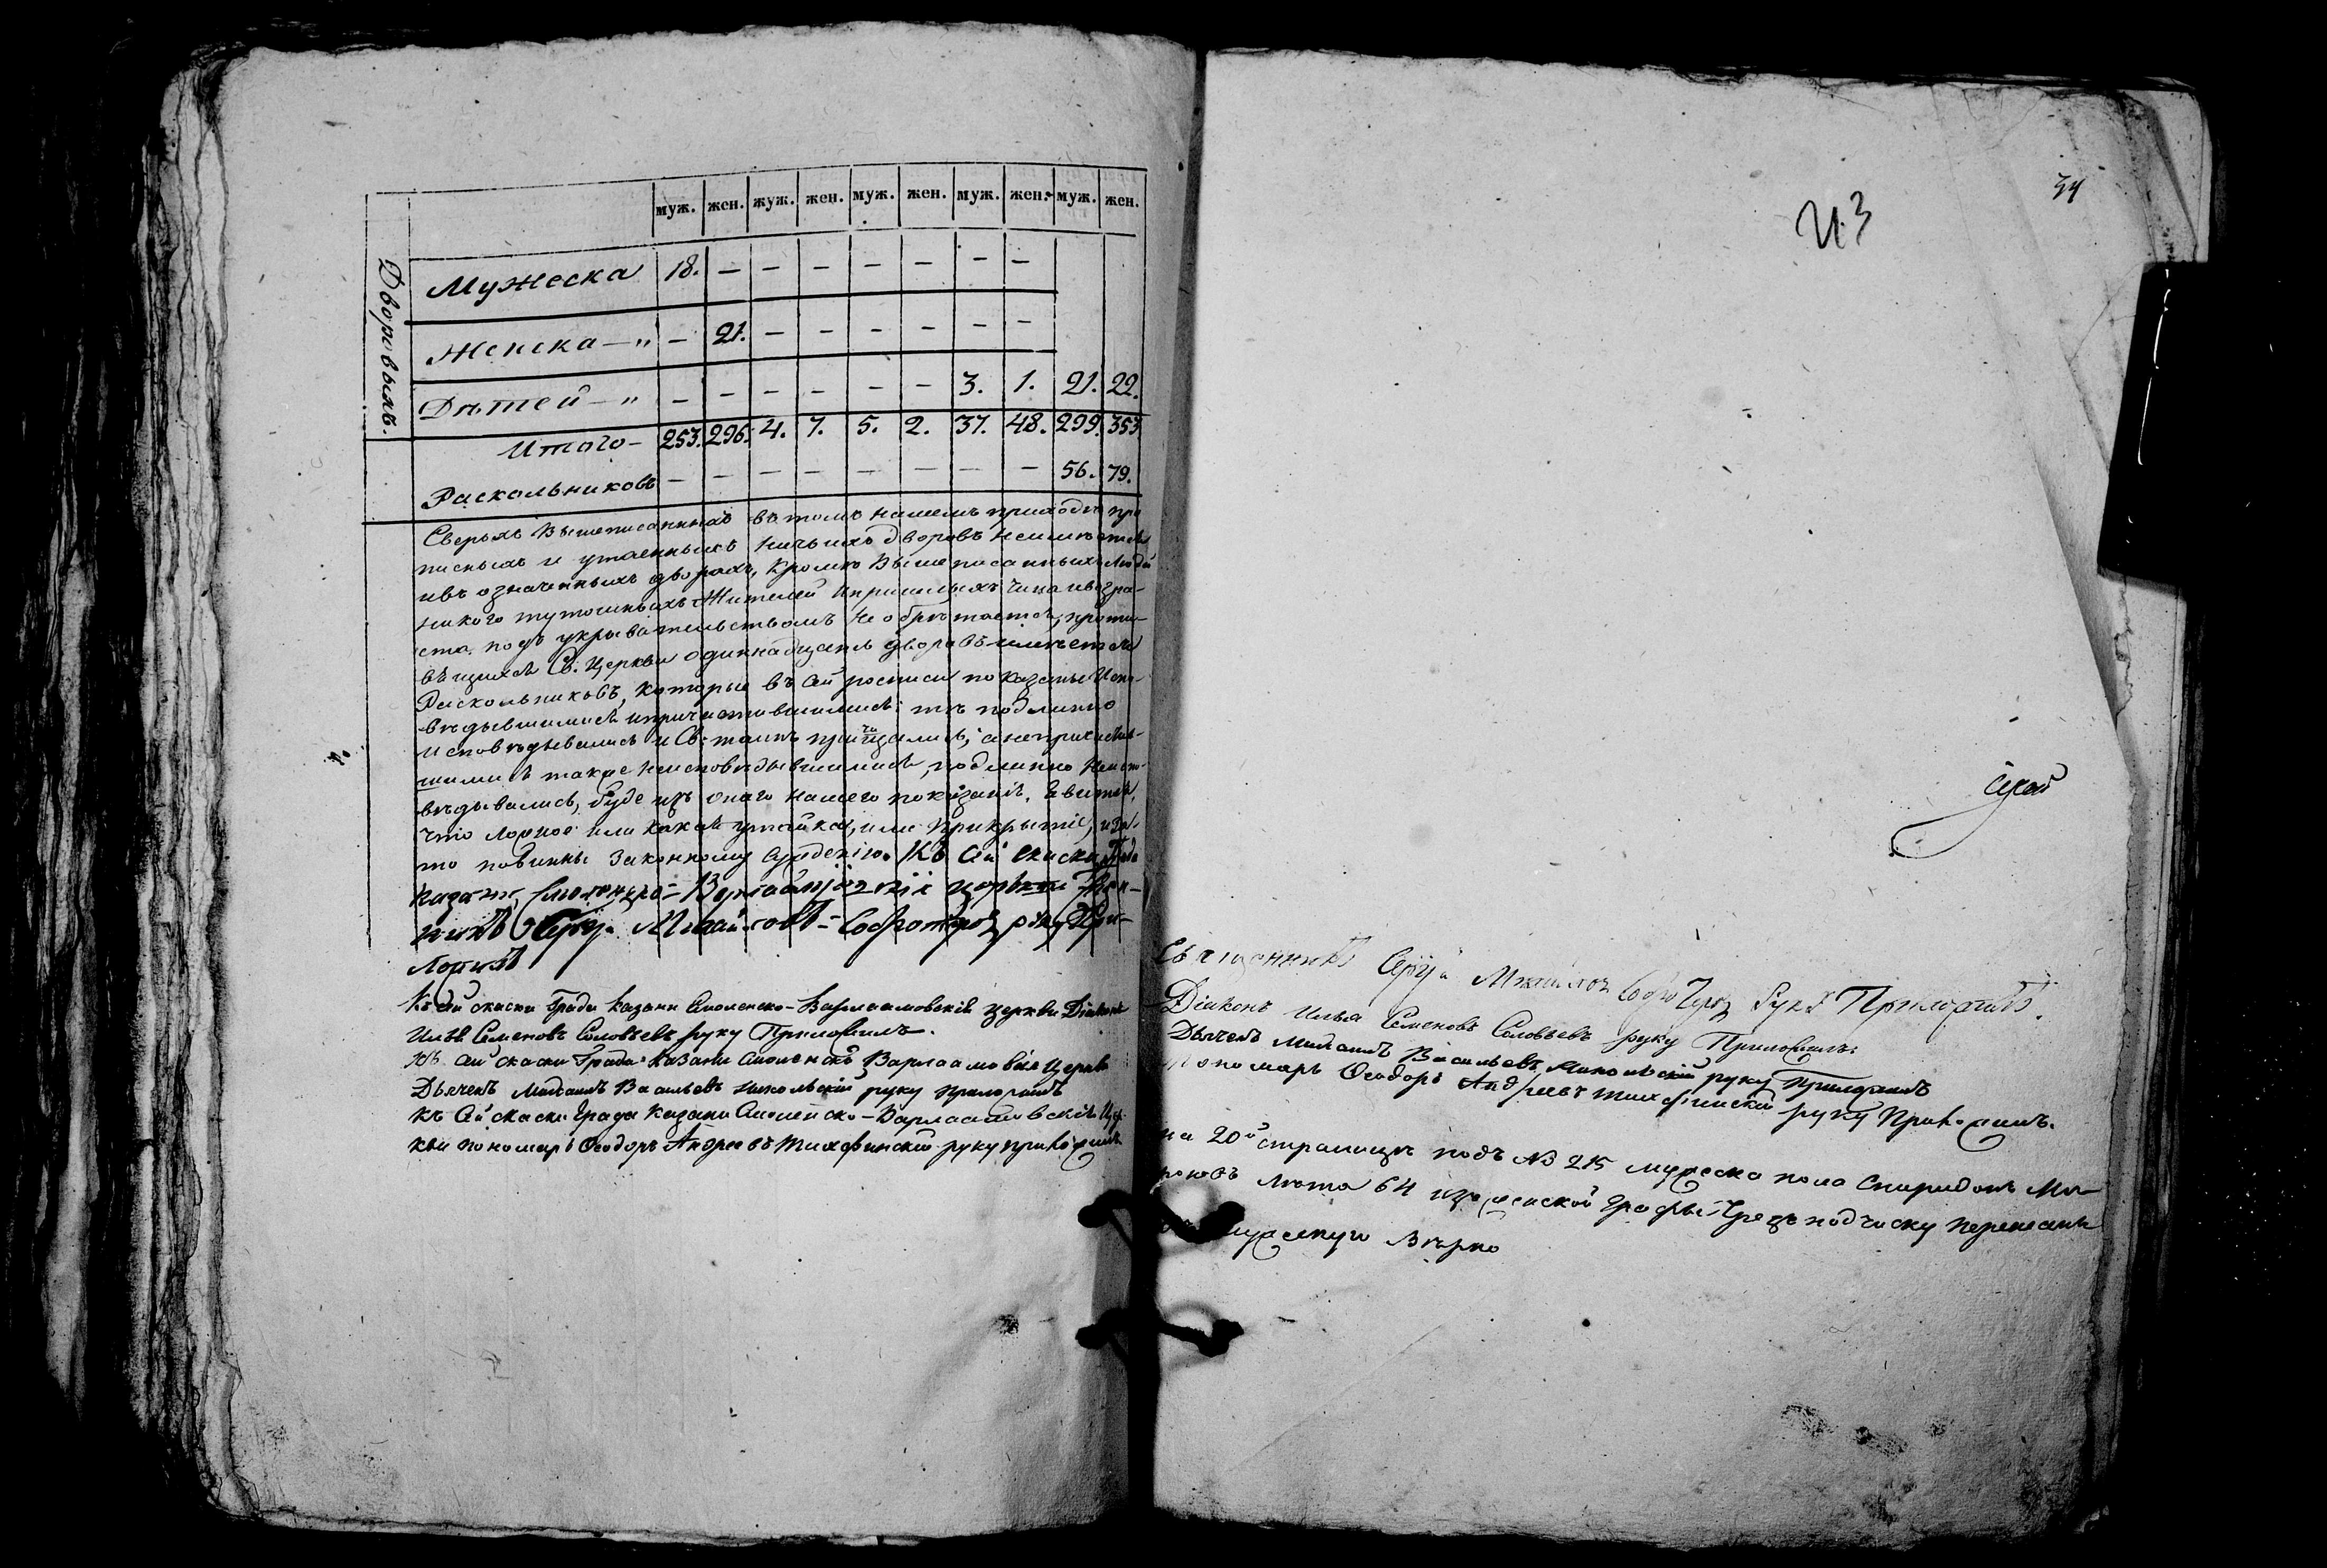 муж. жен. жуж. жен. муж. жен. муж. жен. муж. жен.
Дворовыхъ.
Мужеска 18. — — — — — — —
Женска — „ — 21. — — — — — —
Дѣтей — „ — — — — — — 3. 1. 21. 22.
Итого — 253. 296. 4. 7. 5. 2. 37. 48. 299. 353
Раскольниковъ — — — — — — — — 56. 79.
Сверьхъ вышеписанныхъ въ томъ нашемъ приходѣ про
писныхъ и утаенныхъ ничьихъ дворовъ неимѣется
ивъ означенныхъ дворахъ, кромѣ вышеписанныхъ людей
никого тутошныхъ жителей ипришлыхъ чина ивозра-
ста подъ укрывательствомъ необрѣтается, проти-
вящихся Св. Церкви одиннадцать дворовъ имѣется
Раскольниковъ, которые въ сей росписи показаны Испо-
вѣдывшимися ипричастившимися: тѣ подлинно
исповѣдывались и Св: таинъ причащались, а непричастив-
шимися также неисповѣдывшимися, подлинно неиспо-
вѣдывались, буде изъ онаго нашего показанія, явится,
что ложное или какая утайка, или прикрытіе, иза
то повинны законному сужденію. Къ сей скаски Града
Казани, Смоленско-Варлаамовскія церкви Свящ-
никъ Сергій Михайловъ
ложилъ
Къ сей скаски Града Казани Смоленско-Варлаамовскія церкви Діаконъ
Илья Семеновъ Соловьевъ руку Приложилъ.
Къ сей скаски Града Казани Смоленско Варлаамовскія Церкви
Дьячекъ Михаилъ Васильевъ Никольскій руку приложилъ
Къ Сей скаски Града Казани Смоленско-Варлаамовскія Цер-
кви пономарь Ѳеодоръ Андреевъ Тихвинскій руку приложилъ
34
Священникъ Сергій Михайловъ руку Приложилъ.
Діаконъ Илья Семеновъ Соловьевъ руку Приложилъ:
Дьячекъ Михаилъ Васильевъ Никольскій руку Приложилъ
Пономарь Ѳеодоръ Андреевъ Тихвинскій руку Приложилъ.
на 20й страницѣ подъ № 215 мужеска пола Спиридонъ
лѣта 64 изъ женской Графы чрезъ подчиску перенесенъ
мужескую Вѣрно